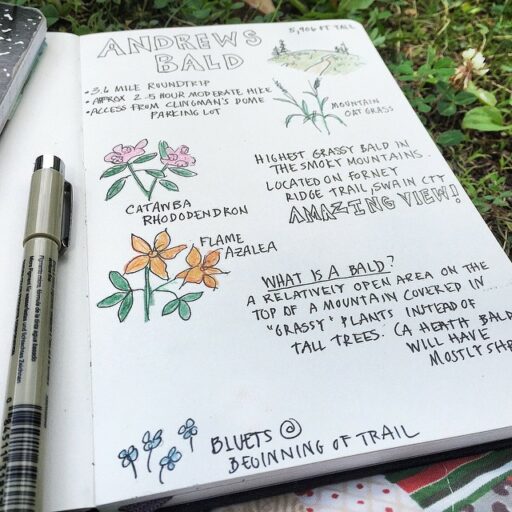 ANDREWS
BALD
5,906 FT TALL
• 3.6 MILE ROUNDTRIP
• APPROX 2.5 HOUR MODERATE HIKE
• ACCESS FROM CLINGMAN'S DOME
PARKING LOT
MOUNTAIN
OAT GRASS
HIGHEST GRASSY BALD IN
THE SMOKY MOUNTAINS.
LOCATED ON FORNEY
RIDGE TRAIL, SWAIN CTY
AMAZING VIEW!
CATAWBA
RHODODENDRON
FLAME
AZALEA
WHAT IS A BALD?
A RELATIVELY OPEN AREA ON THE
TOP OF A MOUNTAIN COVERED IN
"GRASSY" PLANTS INSTEAD OF
TALL TREES. (A HEATH BALD
WILL HAVE
MOSTLY SHR
BLUETS @
BEGINNING OF TRAIL